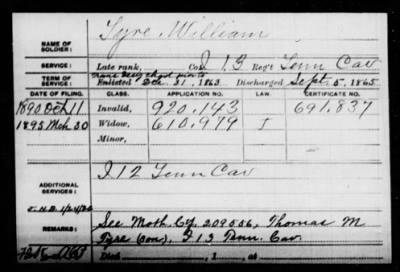 NAME OF SOLDIER: Tyre, William
SERVICE: Late rank, Co. I 13 Reg't Tenn Cav
TERM OF SERVICE: Enlisted Dec. 31, 1863. Discharged Sept. 5, 1865
DATE OF FILING. CLASS. APPLICATION NO. LAW. CERTIFICATE NO.
1890 Oct 11 Invalid, 920.143 691.837
1895 Mch 30 Widow, 610.979
Minor,
ADDITIONAL SERVICES: I 12 Tenn Cav
REMARKS: See Moth. Thomas M
Tyre (son), 13 Tenn. Cav.
Died , 1 , at